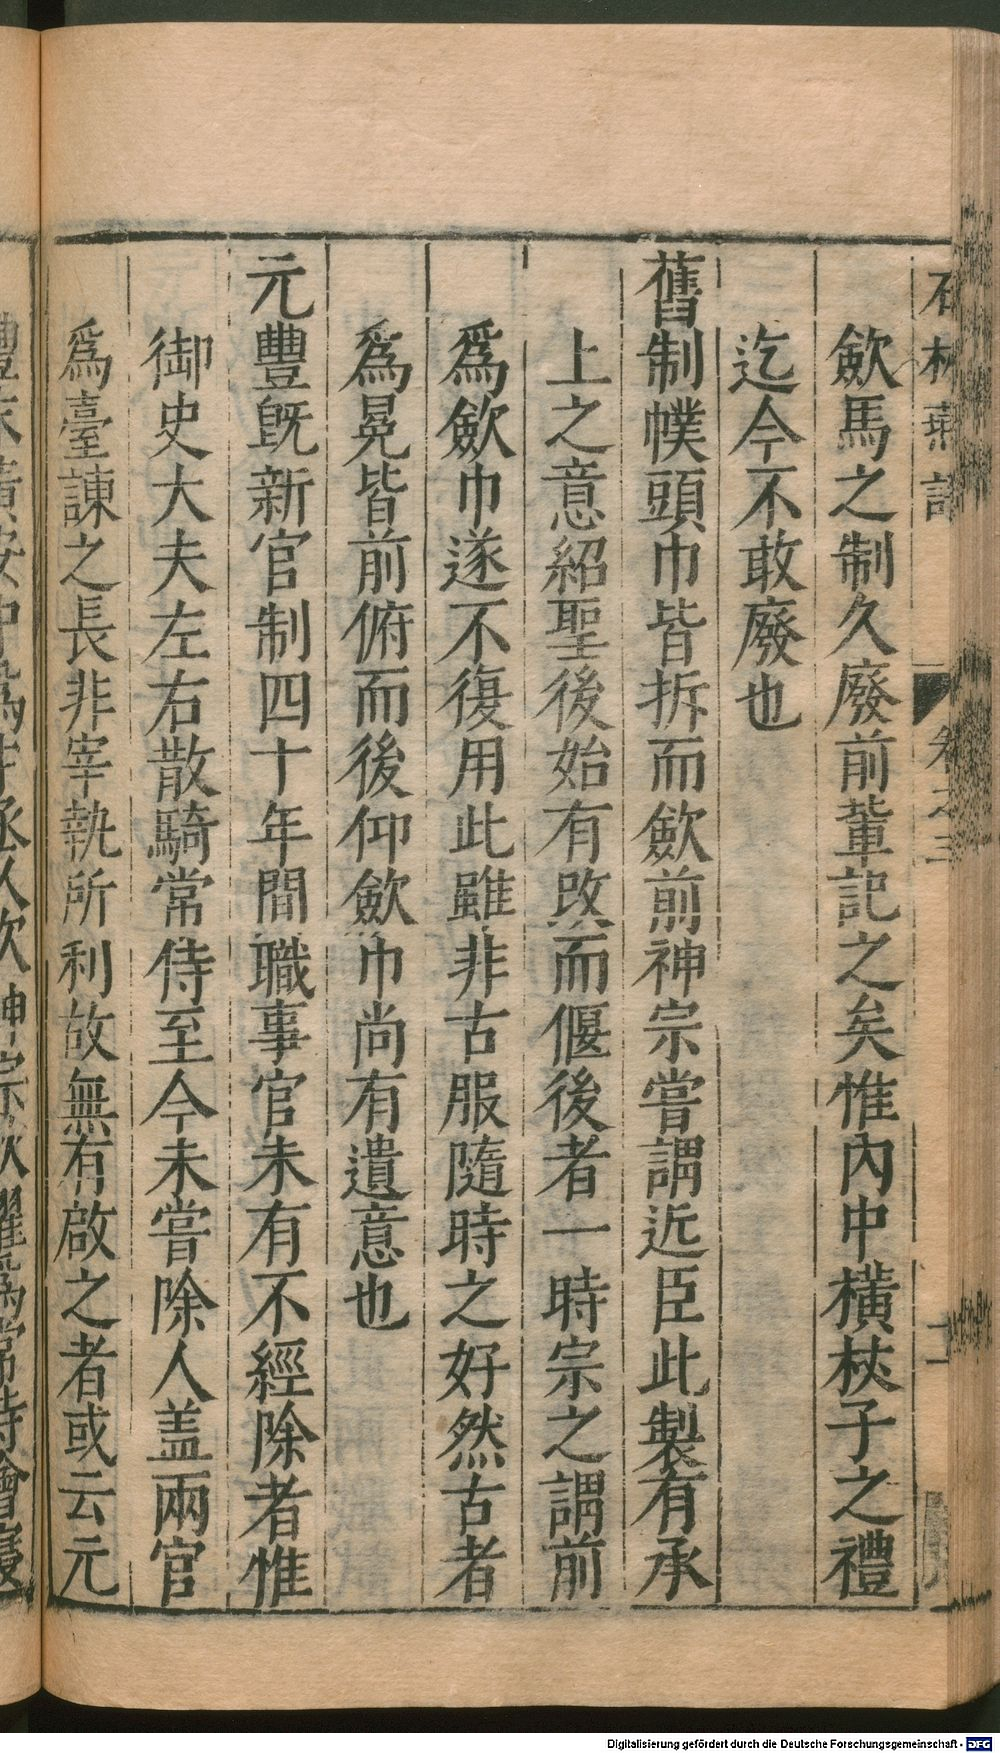 石林燕語 卷之三
歛馬之制久廢前輩記之矣惟內中橫杖子之禮
迄今不敢廢也
舊制幞頭巾皆拆而歛前神宗嘗謂近臣此製有承
上之意紹聖後始有改而偃後者一時宗之謂前
為歛巾遂不復用此雖非古服隨時之好然古者
為冕皆前俯而後仰歛巾尚有遺意也
元豐旣新官制四十年間職事官未有不經除者惟
御史大夫左右散騎常侍至今未嘗除人盖兩官
為臺諫之長非宰執所利故無有啟之者或云元
Digitalisierung gefördert durch die Deutsche Forschungsgemeinschaft - DFG